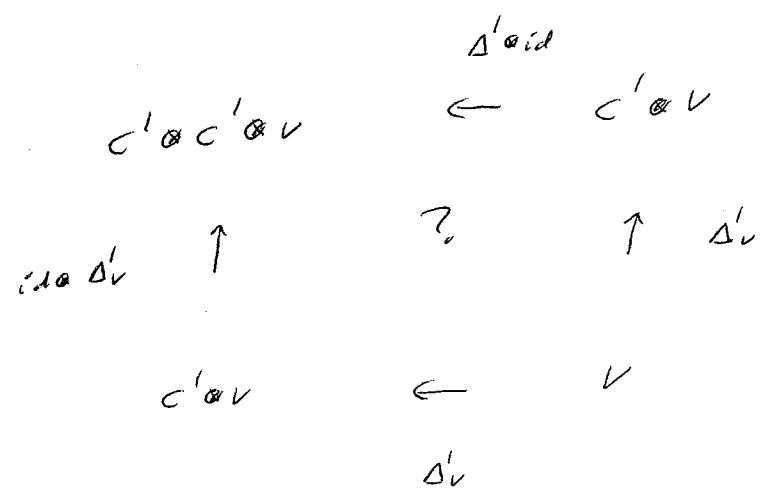 Δ'⊗id
C'⊗C'⊗V ← C'⊗V
id⊗Δ'v ↑ ? ↑ Δ'v
C'⊗V ← V
Δ'v